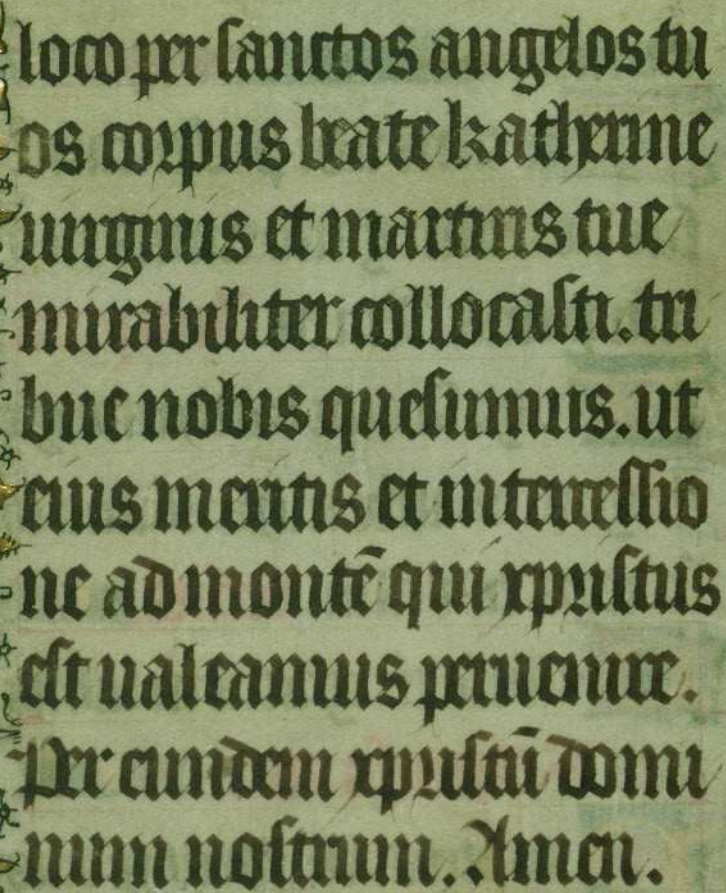 loco per sanctos angelos tu
os corpus beate katherine
uirginis et martiris tue
mirabiliter collocasti. tri
bue nobis quesumus. ut
eius meritis et intercessio
ne ad montē qui xpristus
est ualeamus peruenire.
Per eundem xpristū domi
num nostrum. Amen.